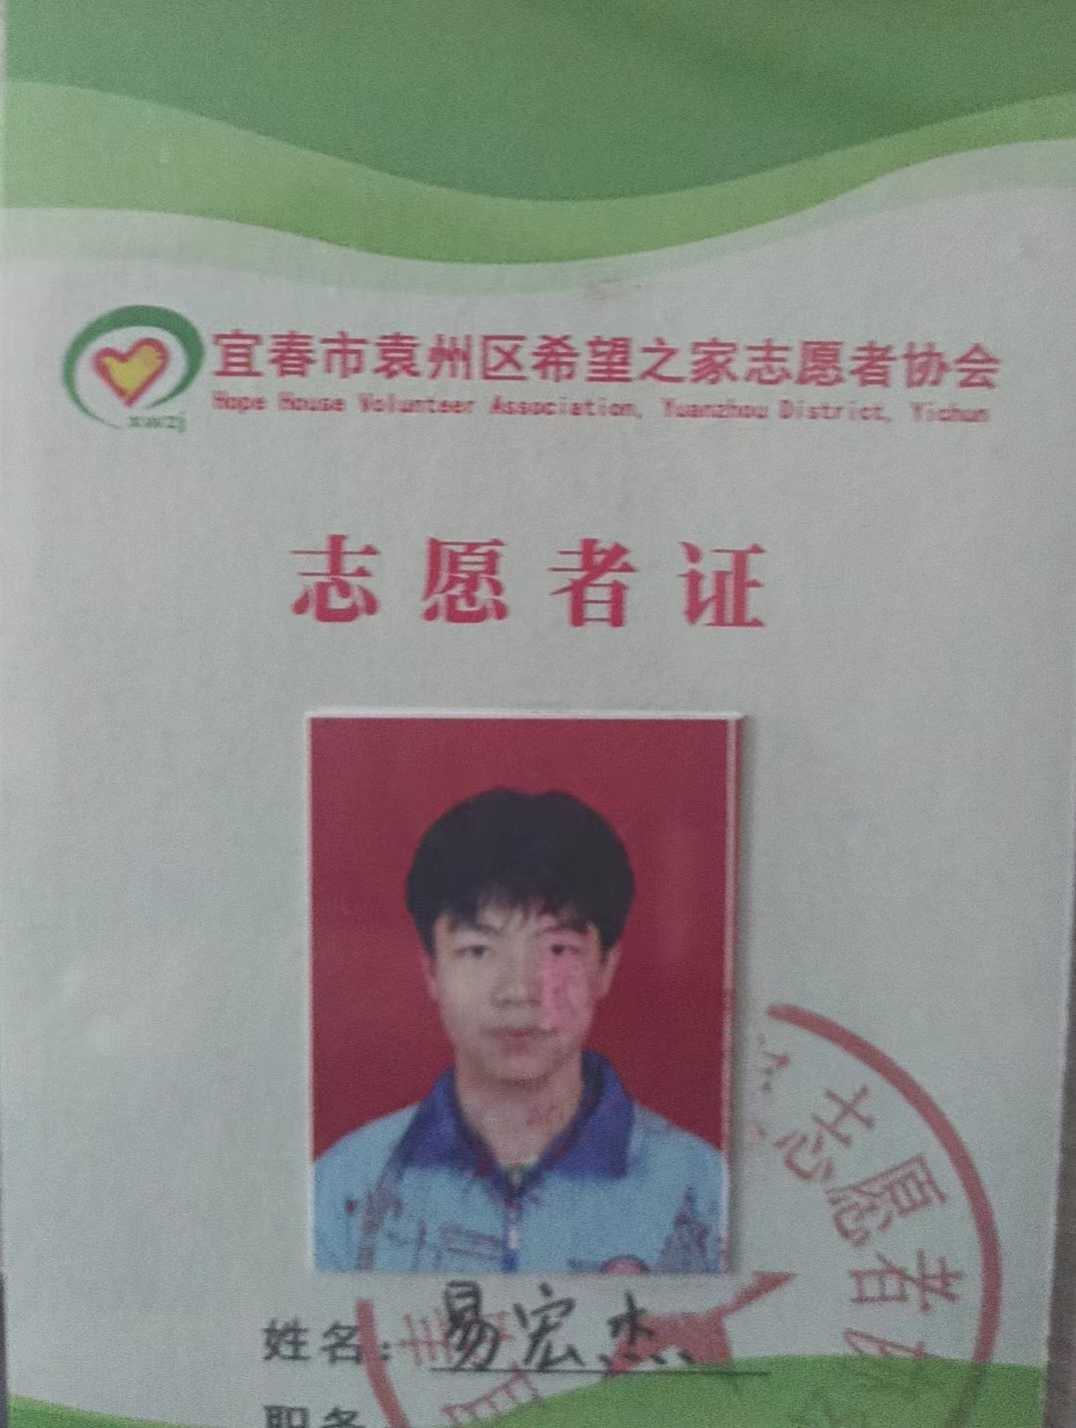 宜春市袁州区希望之家志愿者协会
Hope House Volunteer Association, Yuanzhou District, Yichun
xwzj
志愿者证
姓名：易宏杰
职务
志愿者协